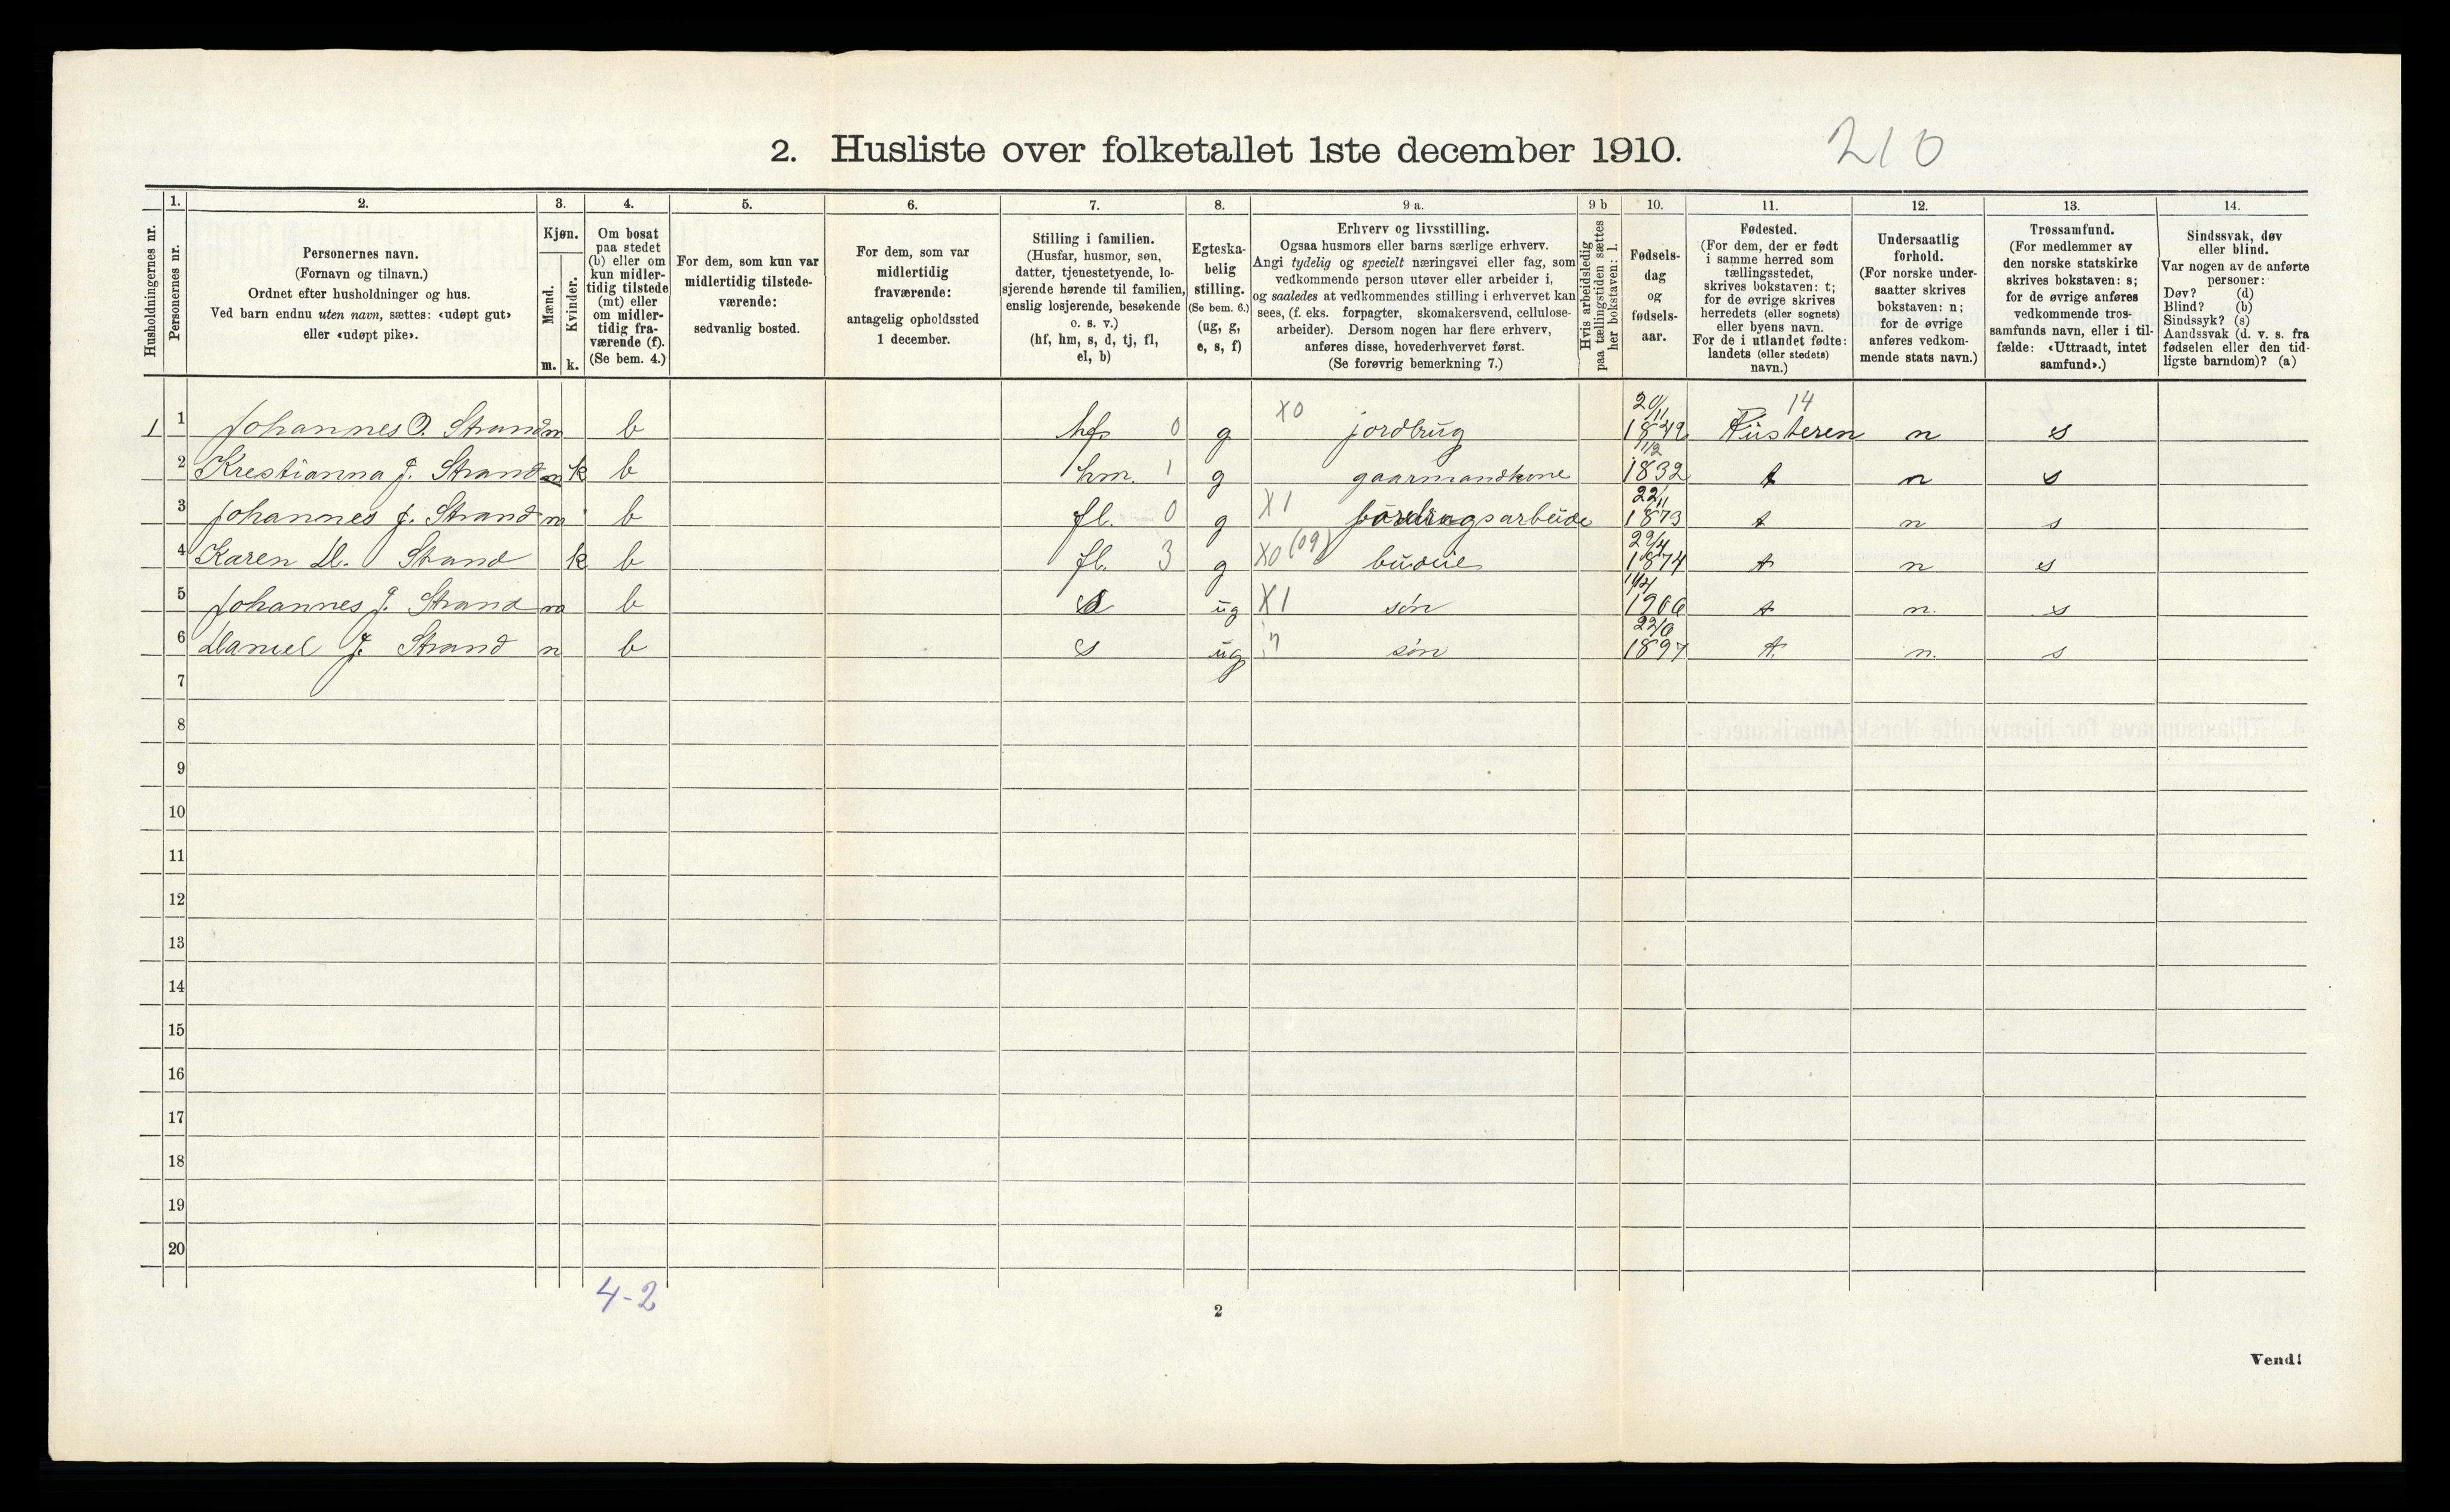 2. Husliste over folketallet 1ste december 1910.
210
Husholdningernes nr.
1.
Personernes nr.
2.
Personernes navn.
(Fornavn og tilnavn.)
Ordnet efter husholdninger og hus.
Ved barn endnu uten navn, sættes: «udøpt gut»
eller «udøpt pike».
3.
Kjøn.
Mænd.
Kvinder.
m. k.
4.
Om bosat
paa stedet
(b) eller om
kun midler-
tidig tilstede
(mt) eller
om midler-
tidig fra-
værende (f).
(Se bem. 4.)
5.
For dem, som kun var
midlertidig tilstede-
værende:
sedvanlig bosted.
6.
For dem, som var
midlertidig
fraværende:
antagelig opholdssted
1 december.
7.
Stilling i familien.
(Husfar, husmor, søn,
datter, tjenestetyende, lo-
sjerende hørende til familien,
enslig losjerende, besøkende
o. s. v.)
(hf, hm, s, d, tj, fl,
el, b)
8.
Egteska-
belig
stilling.
(Se bem. 6.)
(ug, g,
e, s, f)
9 a.
Erhverv og livsstilling.
Ogsaa husmors eller barns særlige erhverv.
Angi tydelig og specielt næringsvei eller fag, som
vedkommende person utøver eller arbeider i,
og saaledes at vedkommendes stilling i erhvervet kan
sees, (f. eks. forpagter, skomakersvend, cellulose-
arbeider). Dersom nogen har flere erhverv,
anføres disse, hovederhvervet først.
(Se forøvrig bemerkning 7.)
9 b
Hvis arbeidsledig
paa tællingstiden sættes
her bokstaven: l.
10.
Fødsels-
dag
og
fødsels-
aar.
11.
Fødested.
(For dem, der er født
i samme herred som
tællingsstedet,
skrives bokstaven: t;
for de øvrige skrives
herredets (eller sognets)
eller byens navn.
For de i utlandet fødte:
landets (eller stedets)
navn.)
12.
Undersaatlig
forhold.
(For norske under-
saatter skrives
bokstaven: n;
for de øvrige
anføres vedkom-
mende stats navn.)
13.
Trossamfund.
(For medlemmer av
den norske statskirke
skrives bokstaven: s;
for de øvrige anføres
vedkommende tros-
samfunds navn, eller i til-
fælde: «Uttraadt, intet
samfund».)
14.
Sindssvak, døv
eller blind.
Var nogen av de anførte
personer:
Døv? (d)
Blind? (b)
Sindssyk? (s)
Aandssvak (d. v. s. fra
fødselen eller den tid-
ligste barndom)? (a)
1 1 Johannes O. Strand m b hf 0 g X0 jordbrug 20/11 1849 14 n s
2 Krestianna J. Strand k b hm. 1 g gaarmandkone 1/12 1832 t n s
3 Johannes J. Strand m b fl. 0 g X1 22/11 1873 t n s
4 Karen D. Stand k b fl. 3 g X0 (09) budeie 29/4 1874 t n s
5 Johannes J. Strand m b s ug X1 søn 1906 t n. s
6 Daniel J. Strand m b s ug " søn 22/6 1897 t. n. s
7
8
9
10
11
12
13
14
15
16
17
18
19
20
4-2
2
Vend!